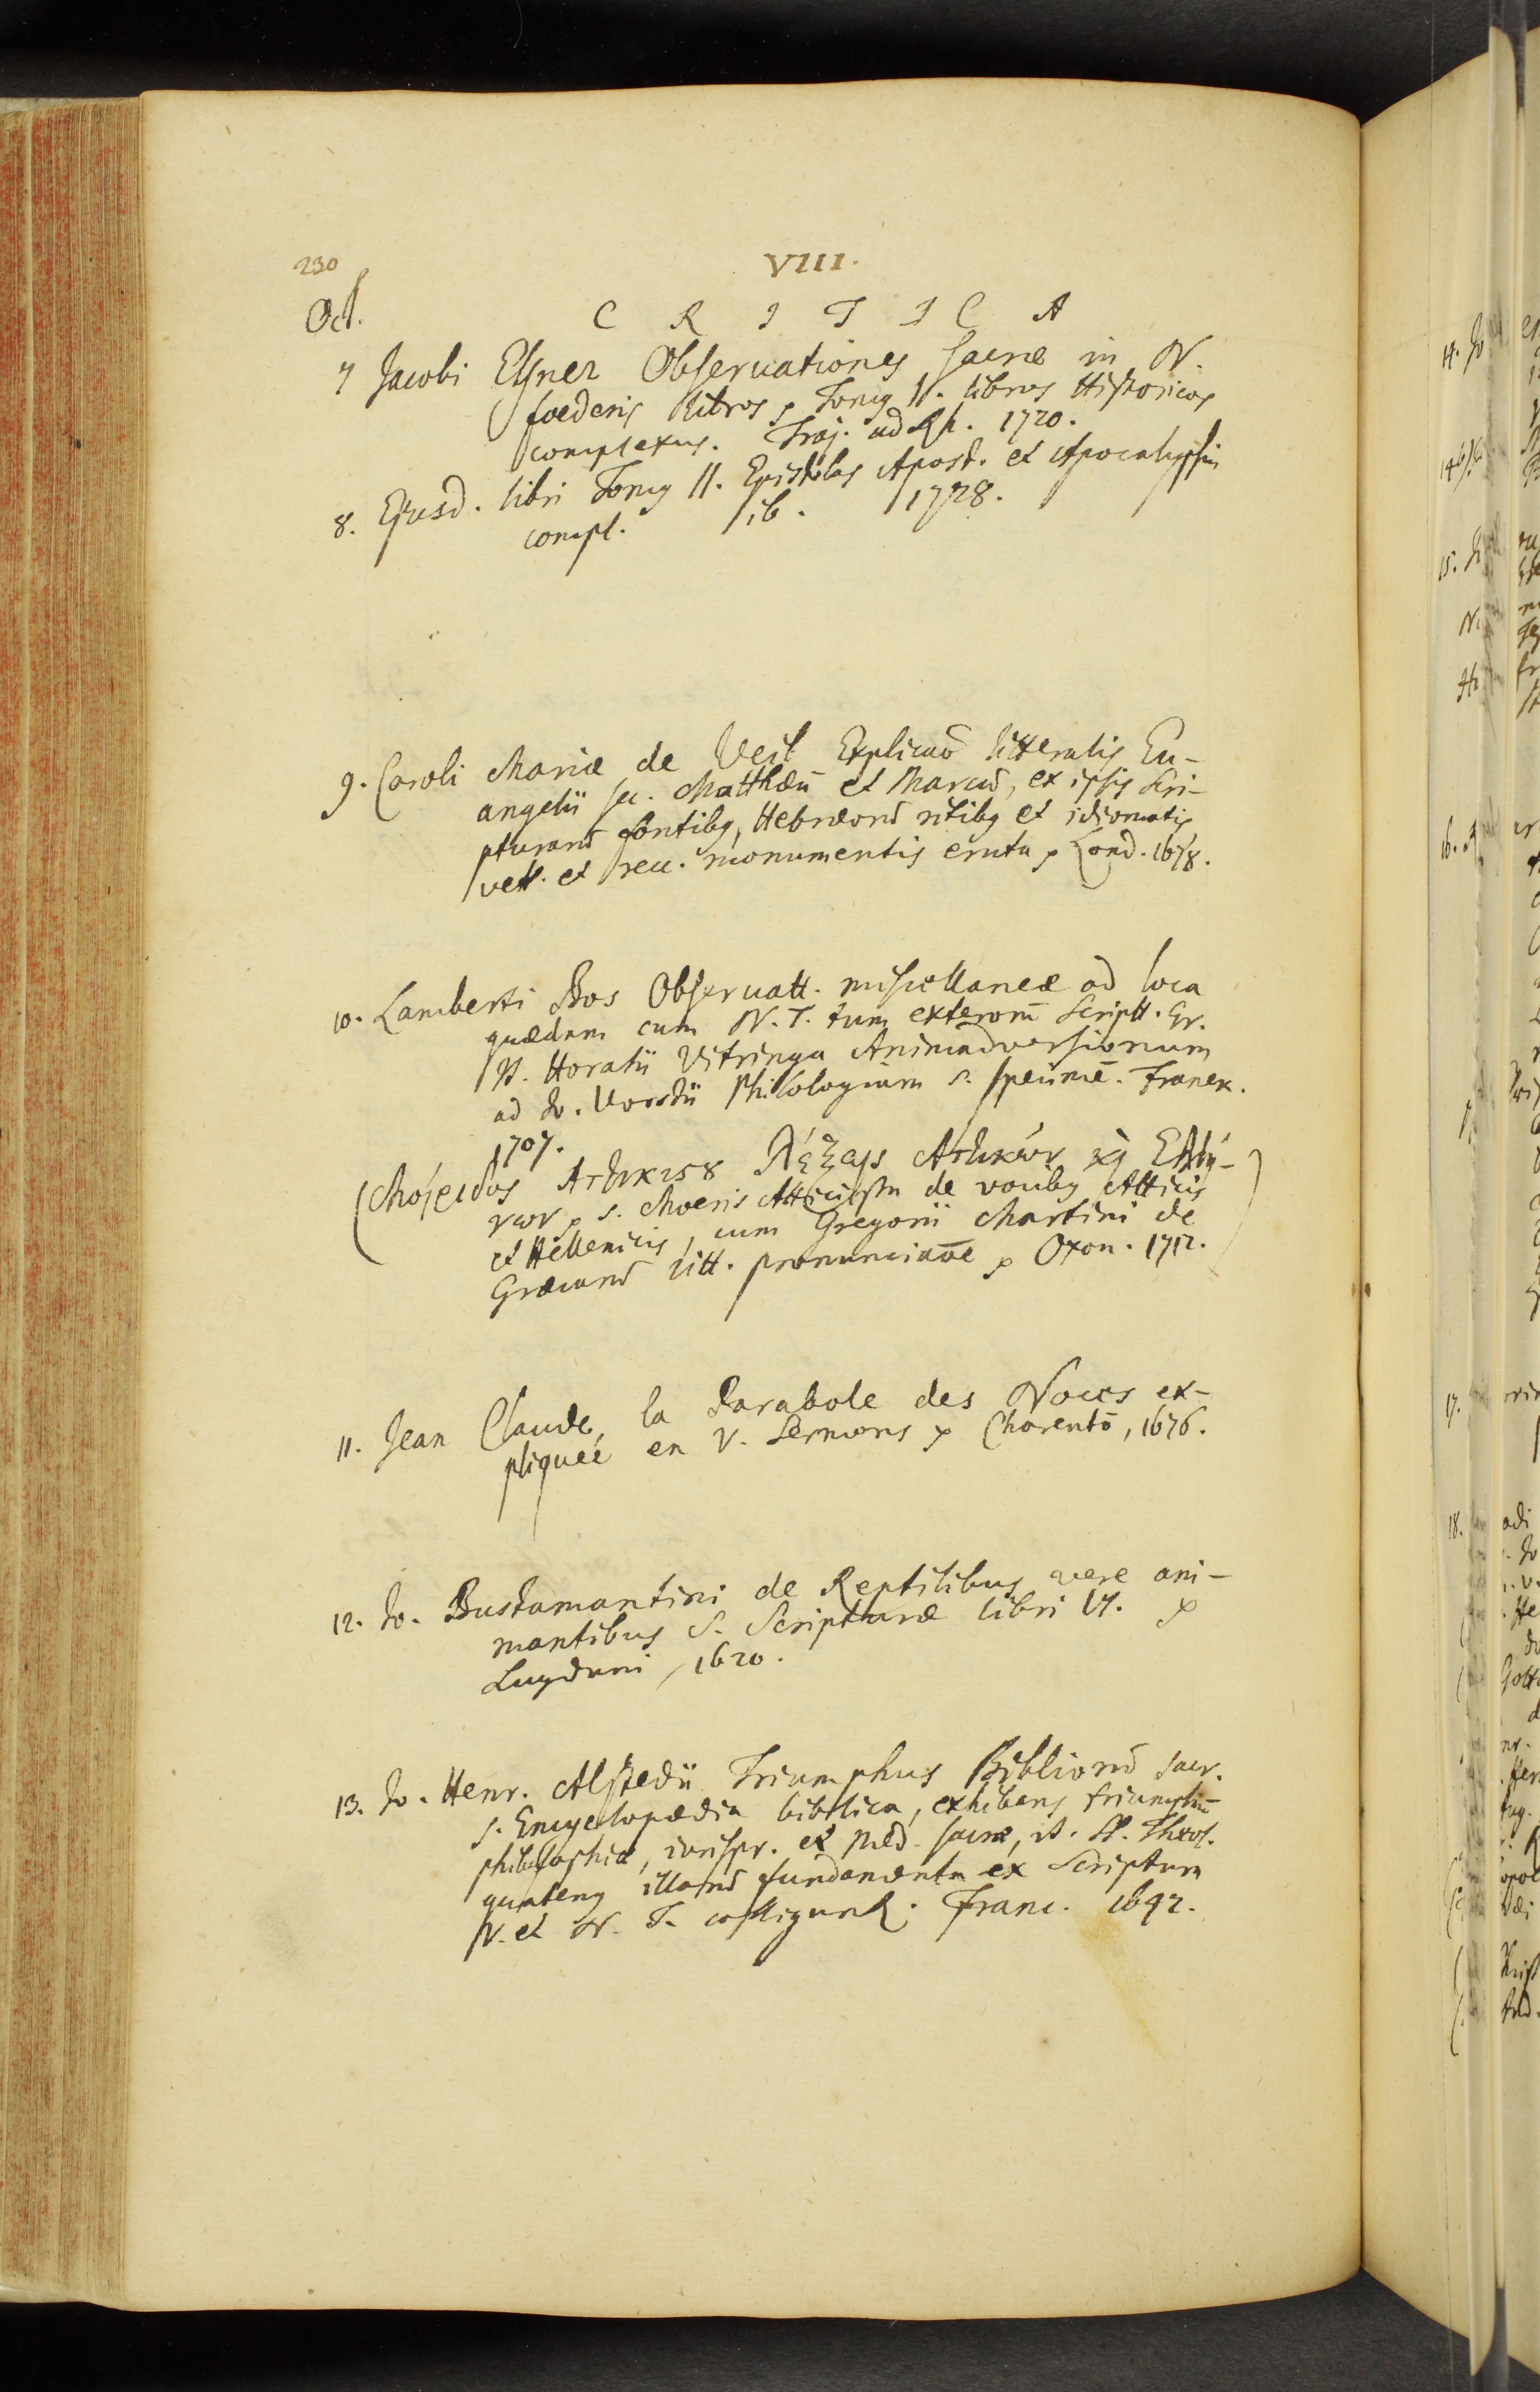 230
VIII.
Oct.
C R I T I C A
7 Jacobi Elsner Observationes sacræ in N.
foederis libros, Tomg I. libros Historicos
complexus. Traj. ad Rh. 1720.
8. Ejusd. libri Tomg II. Epistolas Apost. et Apocalypsin
compl. ib. 1728.
9. Caroli Mariæ de Veil Explicaō litteralis Eu-
angelii sec. Matthæū et Marcū, ex ipsis Scri-
pturarū fontibg, Hebræorū ritibg et idiomatis
vett. et recc. monumentis eruta Lond. 1678.
10. Lamberti Bos Observatt. miscellaneæ ad loca
quædam cum N. T. tum exterorū Scriptt. Gr.
It. Horatii Vitringa Animadversionum
ad Jo. Vorstii Philologiam s. specimē. Franek.
1707.
(Μοίριδος Ἀττικιςȣ Λέξεις Ἀττικῶν κὶ Ἑλλή-
νων s. Moeris Atticista de vocibg Atticis
et Hellenicis, cum Gregorii Martini de
Græcarū litt. pronunciatōe Oxon. 1712.)
11. Jean Claude, la Parabole des Noces ex-
pliqueé en V. Sermons Charentō, 1676.
12. Jo. Bustamantini de Reptilibus vere ani-
mantibus S. Scripturæ libri VI.
Lugduni, 1620.
13. Jo. Henr. Alstedii Triumphus Bibliorū sacr.
s. Encyclopædia biblica, exhibens triumphū
philosophiæ, iurispr. et med. sacræ, it. SS. Theol.
quateng illarū fundamenta ex Scriptura
V. et N. T. colligunt. Franc. 1642.